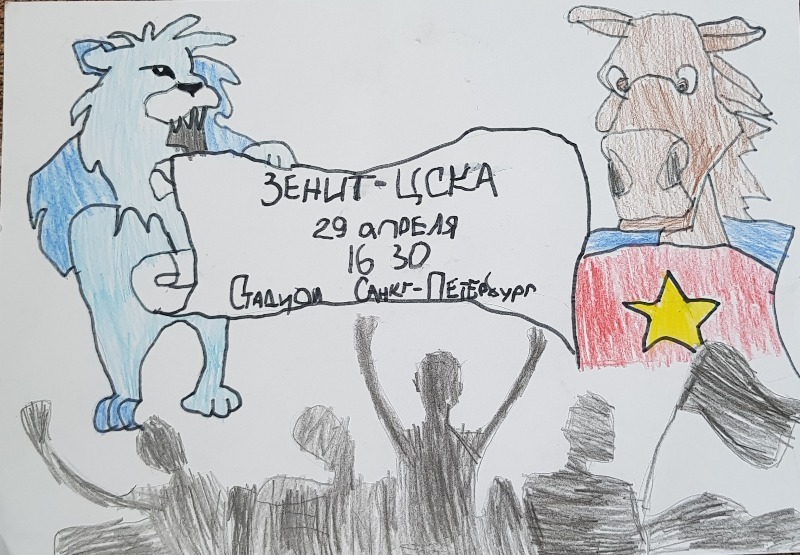 ЗЕНИТ-ЦСКА
29 апреля
16 30
Стадион Санкт-Петербург